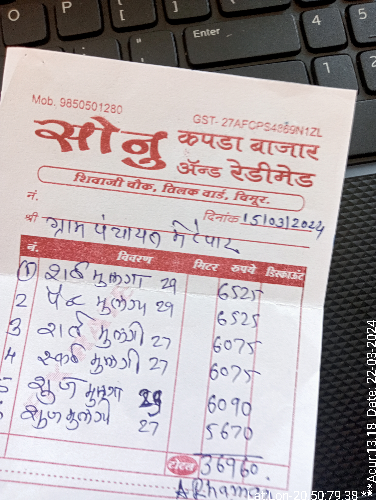 O P { [ } ]
Enter
Mob. 9850501280
GST- 27AFCPS4869N1ZL
सोनु कपडा बाजार
अ‍ॅन्ड रेडीमेड
शिवाजी चौक, तिलक वार्ड, चिमुर.
नं.
दिनांक 15/03/2024
श्री ग्राम पंचायत मेटेपार
नं. विवरण मिटर रुपये डिस्काऊंट
① शर्ट मुलगा 29 6525
2 पॅन्ट मुलगा 29 6525
3 शर्ट मुलगी 27 6075
4 स्कर्ट मुलगी 27 6075
5 शूज मुलगा 29 6090
शूज मुलगी 27 5670
टोटल 36960
Acur:13.18 Date: 22-03-2024
Lon-20:50:79.38